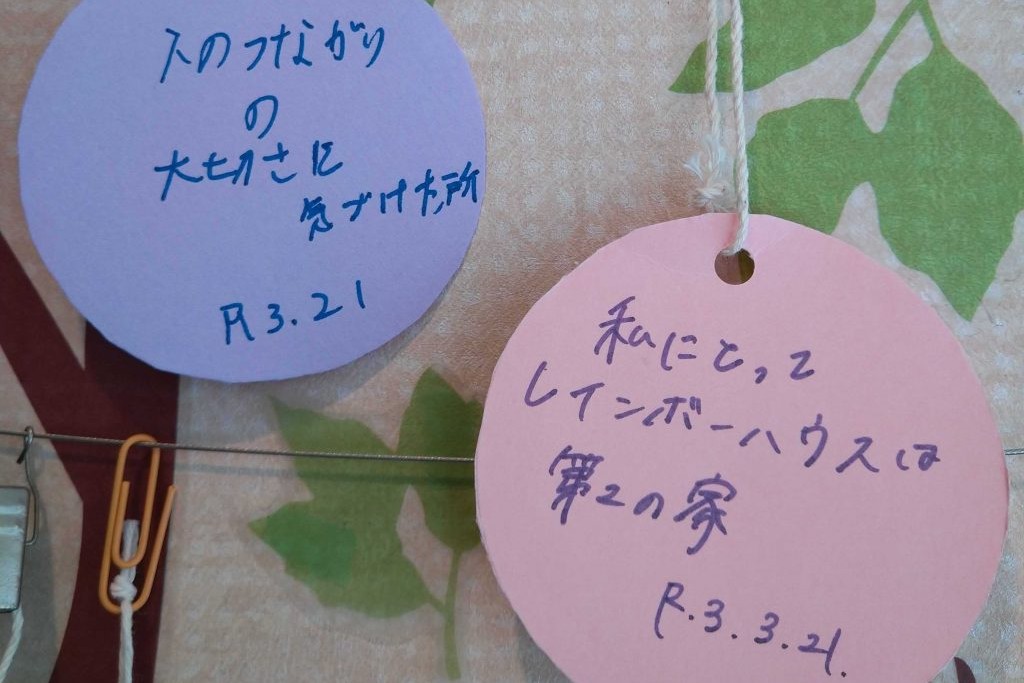 人のつながり
の
大切さに
気づけた所
R3.21
私にとって
レインボーハウスは
第2の家
R.3.3.21.